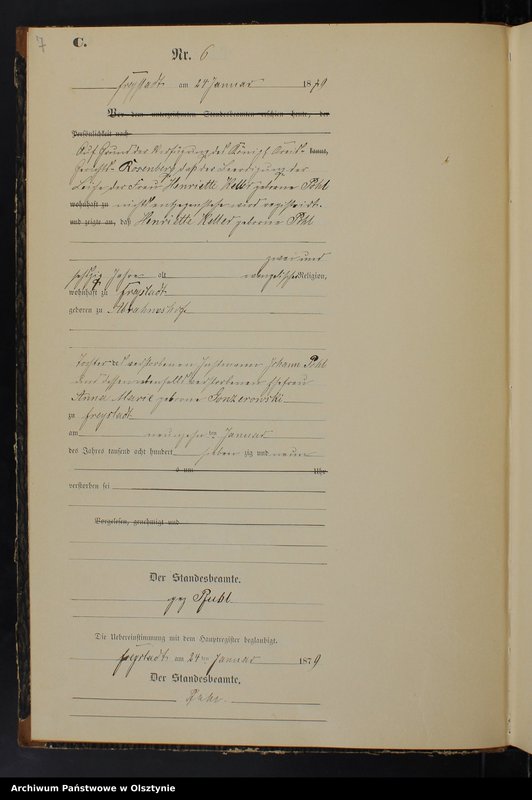 7
C.
Nr. 6
Freystadt am 24 Januar 1879
Vor dem unterzeichneten Standesbeamten erschien heute, der
Persönlichkeit nach
Auf Grund der Verfügung des Königl. Kreis- kannt,
gerichts Rosenberg, daß der Beerdigung der
Leiche der Frau Henriette Keller geborne Pohl
wohnhaft zu nichts entgegenstehe wird registrirt
und zeigte an, daß Henriette Keller geborne Pohl
zwei und
Jahre alt evangelischer Religion,
wohnhaft zu Freystadt
geboren zu
Tochter des verstorbenen Johann Pohl
und dessen ebenfalls verstorbenen Ehefrau
Anna Marie geborne
zu Freystadt
am neunzehnten Januar
des Jahres tausend acht hundert sieben zig und neun
um Uhr
verstorben sei
Vorgelesen, genehmigt und
Der Standesbeamte.
gez
Die Uebereinstimmung mit dem Hauptregister beglaubigt.
Freystadt am 24ten Januar 1879
Der Standesbeamte.
Archiwum Państwowe w Olsztynie